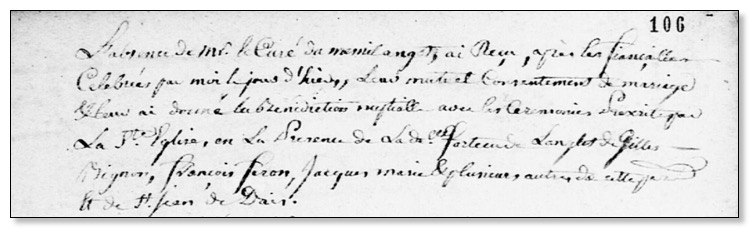 106
L'absence de Mr. le Curé du mesnil angot, ai Reçu, après les fiançailles
Celebrées par moi le jour d'hier, Leur mutuel Consentement de mariage
& Leur ai donné la bénédiction nuptialle avec les Ceremonies Prescrites par
La Ste Eglise, en La Presence de Lad. de Langlois de Gilles
Bignon, françois feron, Jacques marie & plusieurs autres de cette par
Et de St. jean de Daie.